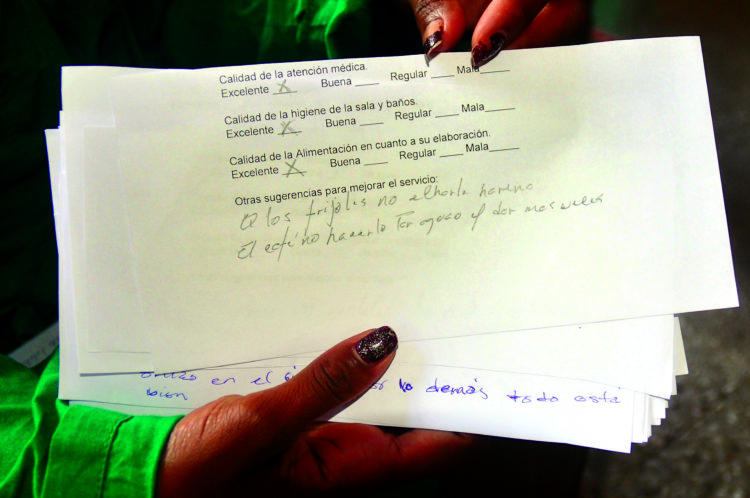 Calidad de la atención médica.
Excelente X Buena ____ Regular ____ Mala____
Calidad de la higiene de la sala y baños.
Excelente X Buena ____ Regular ____ Mala____
Calidad de la Alimentación en cuanto a su elaboración.
Excelente X Buena ____ Regular ____ Mala____
Otras sugerencias para mejorar el servicio:
A los frijoles no echarle harina
El café no hacerlo Tan aguao y dar mas
en el lo demás todo está
bien